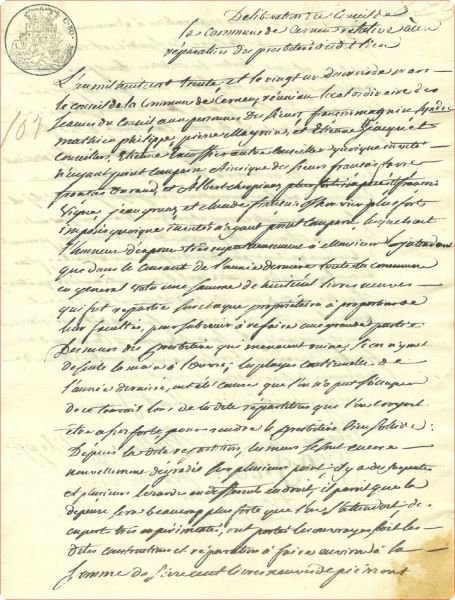 Deliberation du Conseil de
la commune de Cerneu relative à la
réparation du presbitère dudit lieu
L'an mil huit cent trente et le vingt un du mois de mars
le conseil de la Commune de Cerneu, réuni au local ordinaire des
séances du Conseil aux personnes des sieurs, françois magnin syndic
mathieu philippe, pierre Magnin, et Etienne Jacquet
Conseiller, Etienne autre Conseiller quoique invité
n'ayant point Comparu, Ainsi que des sieurs françois
françois Durand, et Albert plus forts imposés
Vignet jean et claude françois plus forts
imposés quoique invités n'ayant point Comparu, lesquels ont
l'honneur d'exposer très respectueusement à Monsieur L'jntendant
que dans le Courant de l'année dernière toute la commune
en général vota une somme de huit cent livres neuves
qui fut répartie sur chaque propriétaire à proportion de
leur facultés, pour subvenir à refaire une grande partie
Des murs du presbitère qui menacent ruine; si on n'y met
de suite la main à l'œuvre; les pluyes continuelles de
l'année dernière, ont été cause que l'on n'a pu s'occuper
de ce travail lors de la dite répartition que l'on croyait
être assez forte pour rendre le presbitère bien solide;
Depuis la dite répartition, les murs se sont encore
nouvellement dégradés sur plusieurs point; il y a des
et plusieurs en différents endroit; il parait que la
dépense sera beaucoup plus forte que l'on s'attendait; des
expert très expérimentés, ont porté les ouvrages soit les
dites constructions et réparation à faire environ à la
Somme de seize cent livres neuves de piémont